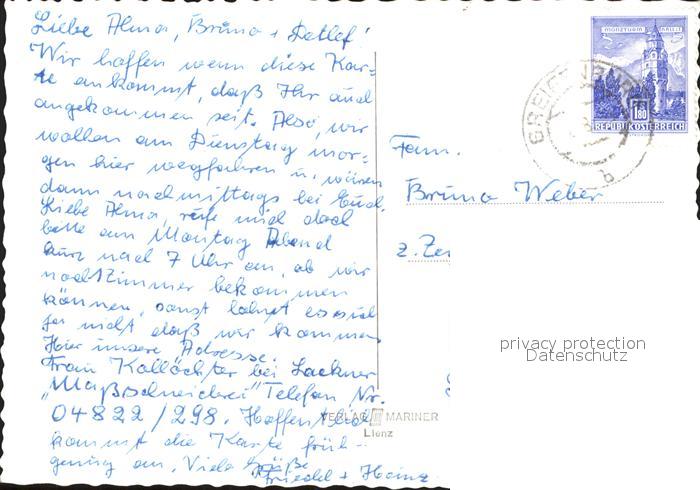 Liebe Alma, Bruno + Detlef!
Wir hoffen wenn diese Kar-
te ankommt, daß Ihr auch
angekommen seit. Also, wir
wollen am Dienstag mor-
gen hier wegfahren u. wären
dann nachmittags bei Euch.
Liebe Alma, rufe mich doch
bitte am Montag Abend
kurz nach 7 Uhr an, ob wir
noch Zimmer bekommen
können, sonst lohnt es sich
ja nicht daß wir kommen.
Hier unsere Adresse.
Frau Kallöchter bei Lackner
„Maßschneiderei" Telefon Nr.
04822/298. Hoffentlich
kommt die Karte früh-
genug an. Viele Grüße
Friedel + Heinz
MÜNZTURM HALL I. T.
1.80
REPUBLIK ÖSTERREICH
b
Fam.
Bruno Weber
z. Zei
privacy protection
Datenschutz
VERLAG MARINER
Lienz